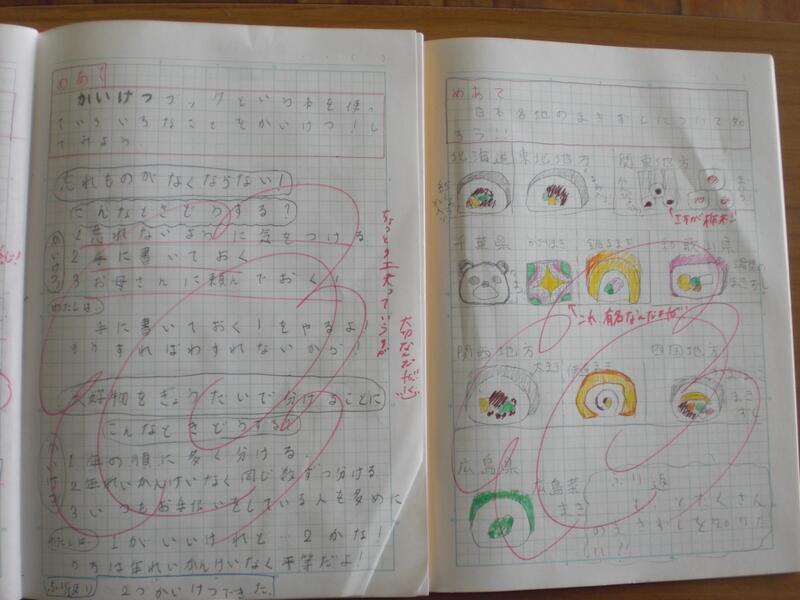 めあて
かいけつブックという本を使っ
ていろいろなことをかいけつ!し
てみよう
忘れものがなくならない!
こんなときどうする?
かいけつ
1 忘れないように気をつける
2 手に書いておく
3 お母さんに頼んでおく!
わたしは、
手に書いておく!をやるよ!
そうすればわすれないから!
ちょっとの工夫っていうのが
大切なんだぜ
大好物をきょうだいで分けることに
こんなときどうする?
かいけつ
1 年の順に多く分ける。
2 年れいかんけいなく同じ数ずつ分ける
3 いつもお手伝いをしている人を多めに
わたしは、
1がいいけれど…2かな!
うちは年れいかんけいなく平等だよ!
ふり返り
2つかいけつできた。
めあて
日本各地のまきずしについて知
ろう!!
北海道
東北地方
関東地方
千葉県
和歌山県
これ、有名なんだぜ
関西地方
太まき
伊達まき
四国地方
まき
ずし
広島県
広島菜
まき
ふり返り